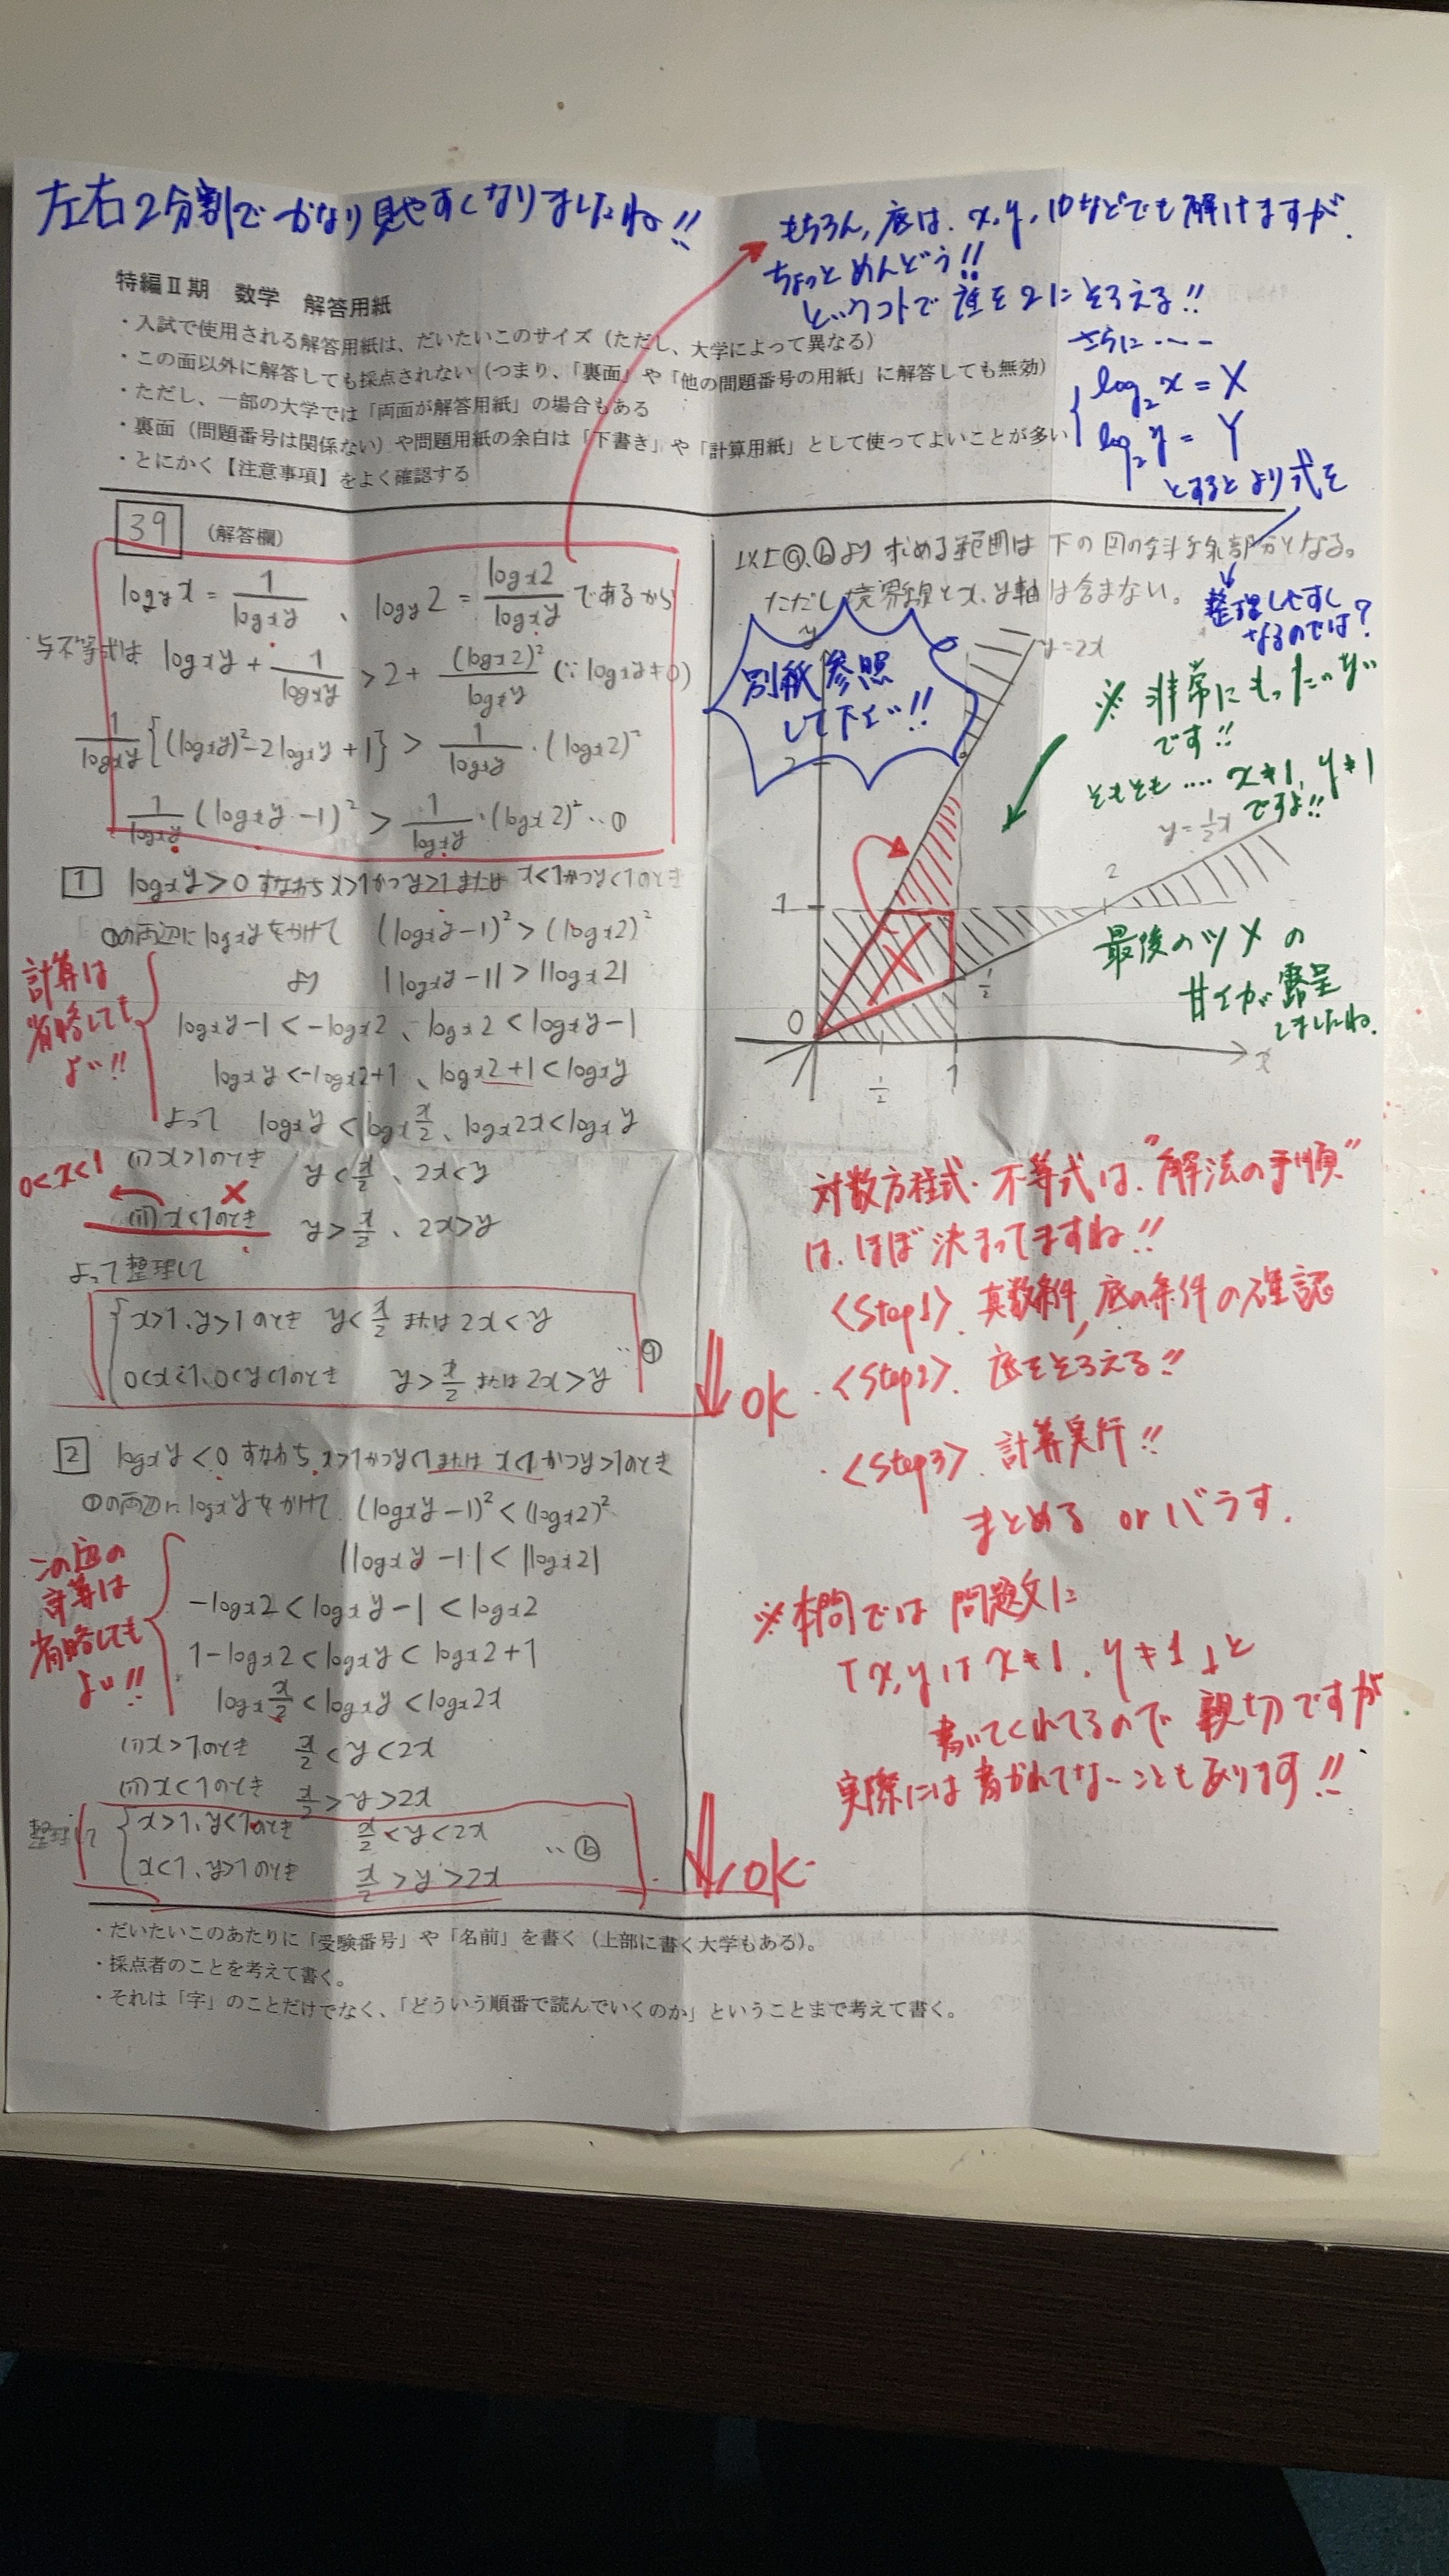 左右2分割でかなり見やすくなりましたね!!
もちろん,底は.x,y,10などでも解けますが.
ちょっとめんどう!!
というコトで底を2にそろえる!!
さらに‥‥
log₂x=X
log₂y=Y
とするとより式を
整理しやすく
なるのでは?
特編Ⅱ期 数学 解答用紙
・入試で使用される解答用紙は、だいたいこのサイズ(ただし、大学によって異なる)
・この面以外に解答しても採点されない(つまり、「裏面」や「他の問題番号の用紙」に解答しても無効)
・ただし、一部の大学では「両面が解答用紙」の場合もある
・裏面(問題番号は関係ない)や問題用紙の余白は「下書き」や「計算用紙」として使ってよいことが多い
・とにかく【注意事項】をよく確認する
39 (解答欄)
log_y x = 1/log_x y 、 log_y 2 = log_x 2/log_x y であるから
与不等式は log_x y + 1/log_x y > 2 + (log_x 2)²/log_x y (∵ log_x y ≠ 0)
1/log_x y {(log_x y)² - 2log_x y + 1} > 1/log_x y ・ (log_x 2)²
1/log_x y (log_x y - 1)² > 1/log_x y ・ (log_x 2)² ‥①
1 log_x y > 0 すなわち x>1かつy>1または x<1かつy<1のとき
①の両辺に log_x y をかけて (log_x y - 1)² > (log_x 2)²
より |log_x y - 1| > |log_x 2|
計算は
省略しても
よい!!
log_x y - 1 < -log_x 2 、 log_x 2 < log_x y - 1
log_x y < -log_x 2 + 1 、 log_x 2 + 1 < log_x y
よって log_x y < log_x x/2 、 log_x 2x < log_x y
(i) x>1のとき y < x/2 、 2x < y
0<x<1
(ii) x<1のとき y > x/2 、 2x > y
よって整理して
x>1、y>1のとき y < x/2 または 2x < y
0<x<1、0<y<1のとき y > x/2 または 2x > y ‥ⓐ
OK
2 log_x y < 0 すなわち x>1かつy<1または x<1かつy>1のとき
①の両辺に log_x y をかけて (log_x y - 1)² < (log_x 2)²
|log_x y - 1| < |log_x 2|
この辺の
計算は
省略しても
よい!!
-log_x 2 < log_x y - 1 < log_x 2
1 - log_x 2 < log_x y < log_x 2 + 1
log_x x/2 < log_x y < log_x 2x
(i) x>1のとき x/2 < y < 2x
(ii) x<1のとき x/2 > y > 2x
整理して x>1、y<1のとき x/2 < y < 2x
x<1、y>1のとき x/2 > y > 2x ‥ⓑ
OK.
以上ⓐ、ⓑより 求める範囲は 下の図の斜線部分となる。
ただし境界線とx、y軸は含まない。
別紙参照
して下さい!!
y
y=2x
2
1
0
1/2
1
1/2
2
y=1/2x
x
※ 非常にもったいない
です!!
そもそも‥‥ x≠1, y≠1
ですよ!!
最後のツメの
甘イカが露呈
しましたね.
対数方程式・不等式は、"解法の手順"
は、ほぼ決まってますね!!
<Step1>. 真数条件,底の条件の確認
<Step2>. 底をそろえる!!
<Step3>. 計算実行!!
まとめる or バラす.
※本問では 問題文に
「x,yは x≠1, y≠1」と
書いてくれてるので 親切ですが
実際には書かれてないこともあります!!
・だいたいこのあたりに「受験番号」や「名前」を書く(上部に書く大学もある)。
・採点者のことを考えて書く。
・それは「字」のことだけでなく、「どういう順番で読んでいくのか」ということまで考えて書く。